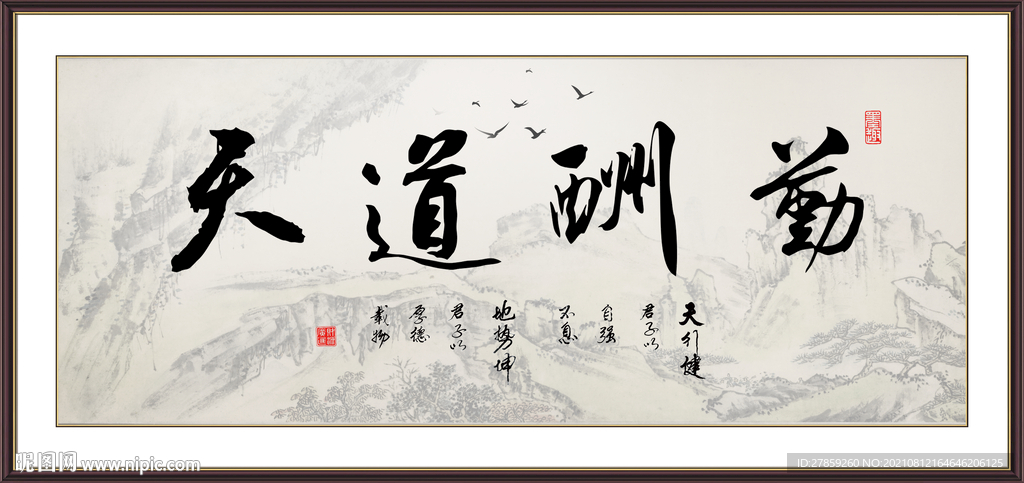 天道酬勤
天行健
君子以
自强
不息
地勢坤
君子以
厚德
載物
昵图网 www.nipic.com
ID:27859260 NO:20210812164646206125